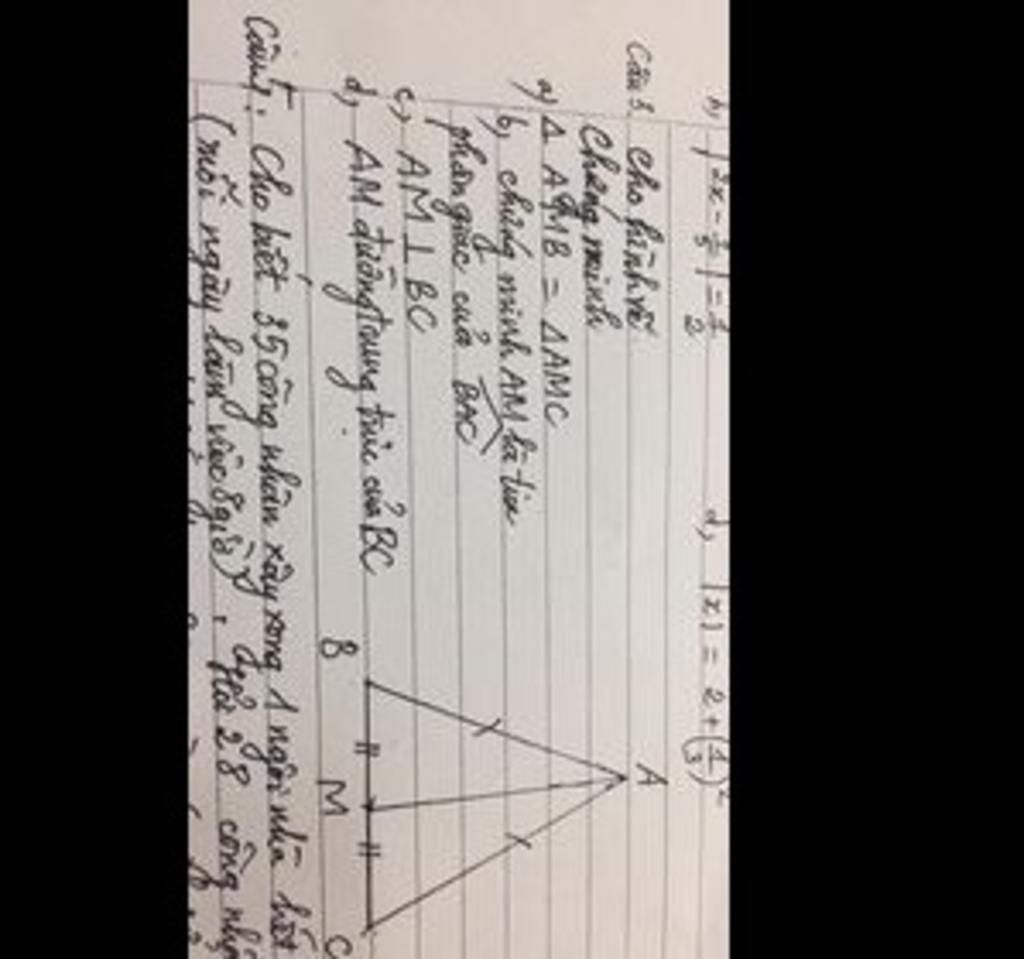 b, |2x - 2/5| = 1/2 d, |x| = 2 + (1/3)²
Câu 3 Cho hình vẽ
Chứng minh
a) Δ AMB = ΔAMC
b, chứng minh AM là tia
phân giác của BAC
c, AM ⊥ BC
d, AM đường trung trực của BC
A
B M C
Cho biết 35 công nhân xây xong 1 ngôi nhà hết
(mỗi ngày làm việc 8 giờ). Hỏi 28 công